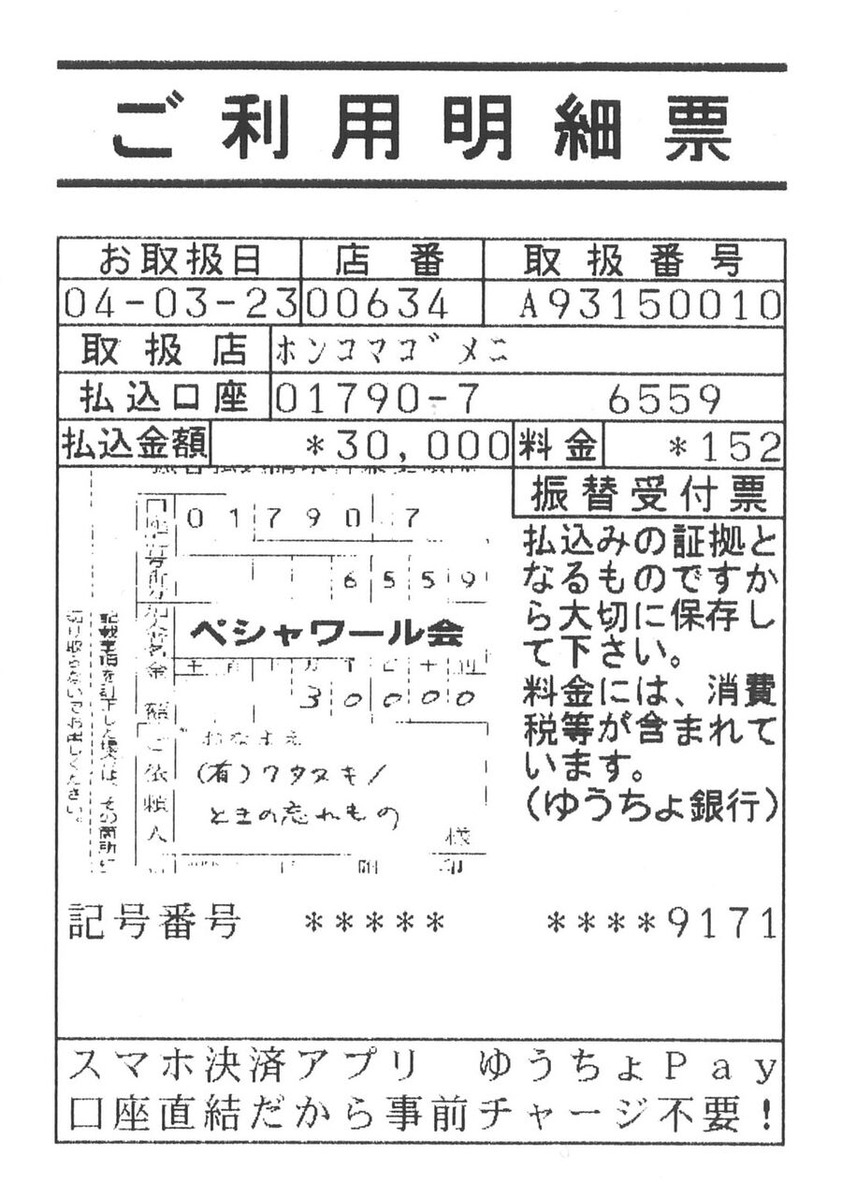 ご利用明細票
お取扱日 店番 取扱番号
04-03-23 00634 A93150010
取扱店 ホンコマゴメニ
払込口座 01790-7 6559
払込金額 *30,000 料金 *152
振替受付票
払込みの証拠と
なるものですか
ら大切に保存し
て下さい。
料金には、消費
税等が含まれて
います。
(ゆうちょ銀行)
01790 7
6559
ペシャワール会
金額
30000
ご依頼人
おなまえ
(有)ワタヌキ/
ときの忘れもの
様
記載事項を訂正した場合は、その箇所に
記号番号 ***** ****9171
スマホ決済アプリ ゆうちょPay
口座直結だから事前チャージ不要!